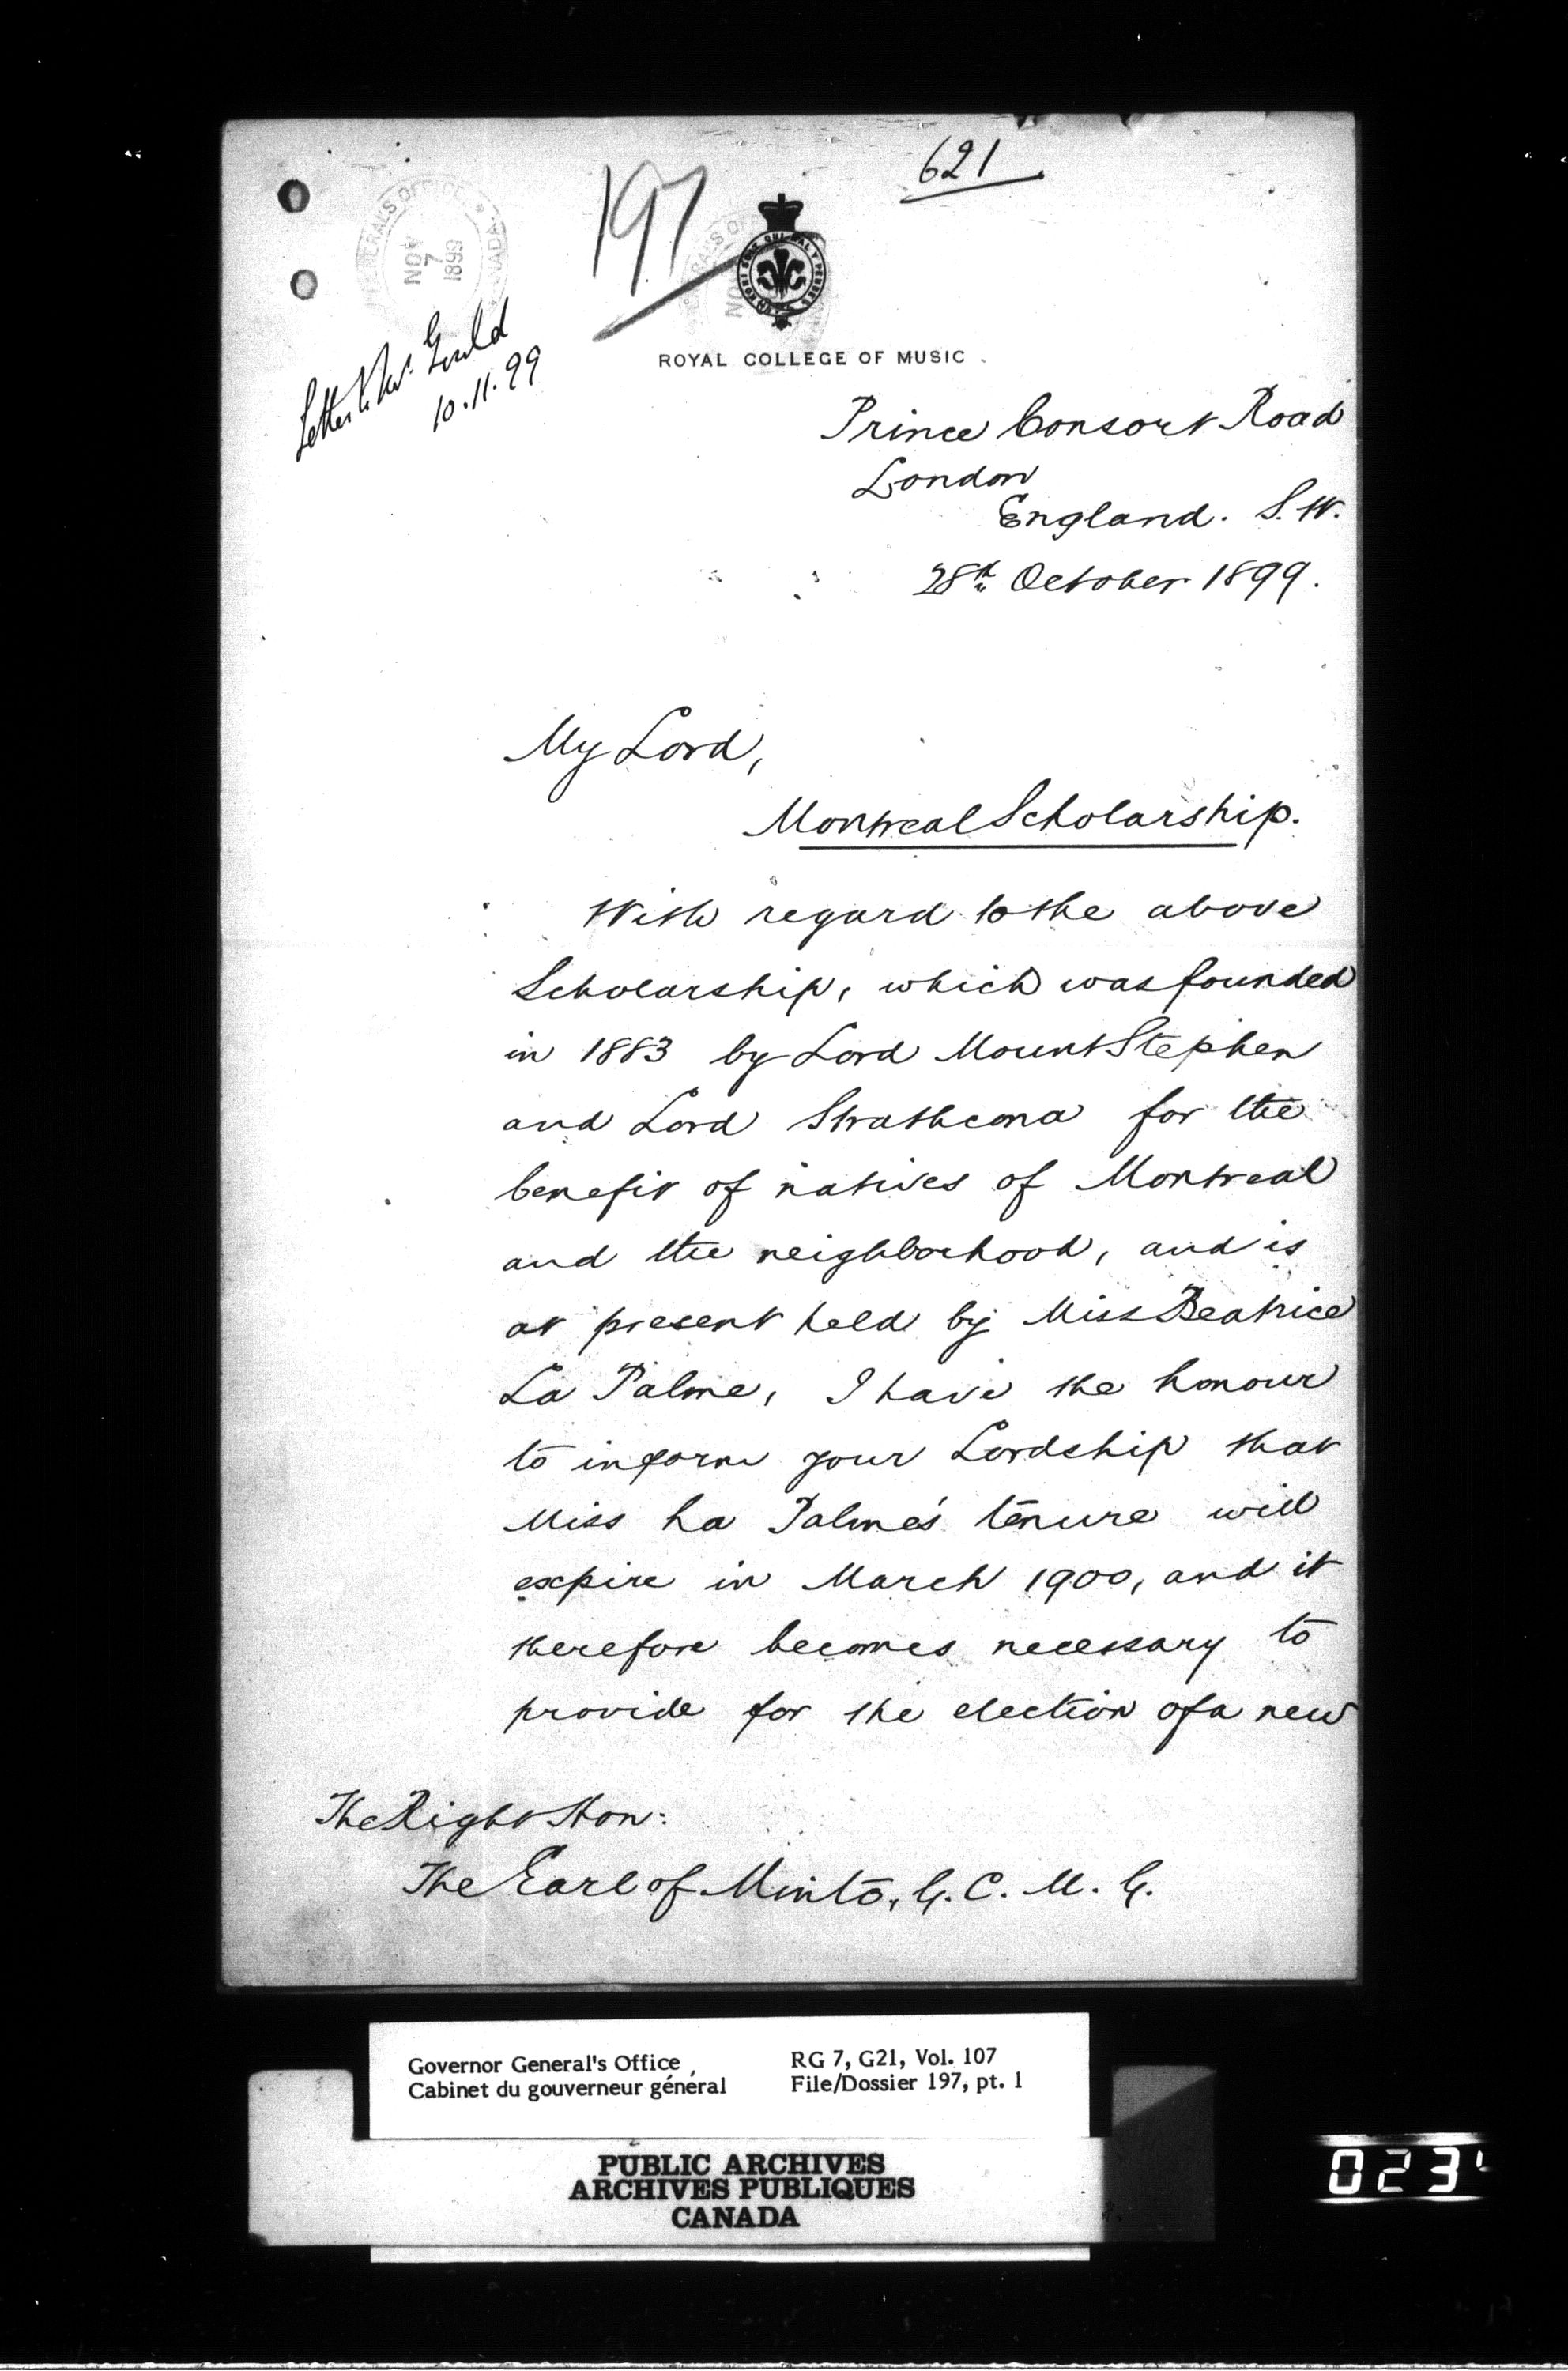 621
197
GENERAL'S OFFICE
NOV
7
1899
Letter to Mr. Gould
10.11.99
HONI SOIT QUI MAL Y PENSE
ROYAL COLLEGE OF MUSIC
Prince Consort Road
London
England. S.W.
28th October 1899.
My Lord,
Montreal Scholarship.
With regard to the above
Scholarship, which was founded
in 1883 by Lord MountStephen
and Lord Strathcona for the
benefit of natives of Montreal
and the neighborhood, and is
at present held by Miss Beatrice
La Palme, I have the honour
to inform your Lordship that
Miss La Palme's tenure will
expire in March 1900, and it
therefore becomes necessary to
provide for the election of a new
The Right Hon:
The Earl of Minto, G.C.M.G.
Governor General's Office
Cabinet du gouverneur général
RG 7, G21, Vol. 107
File/Dossier 197, pt. 1
PUBLIC ARCHIVES
ARCHIVES PUBLIQUES
CANADA
023